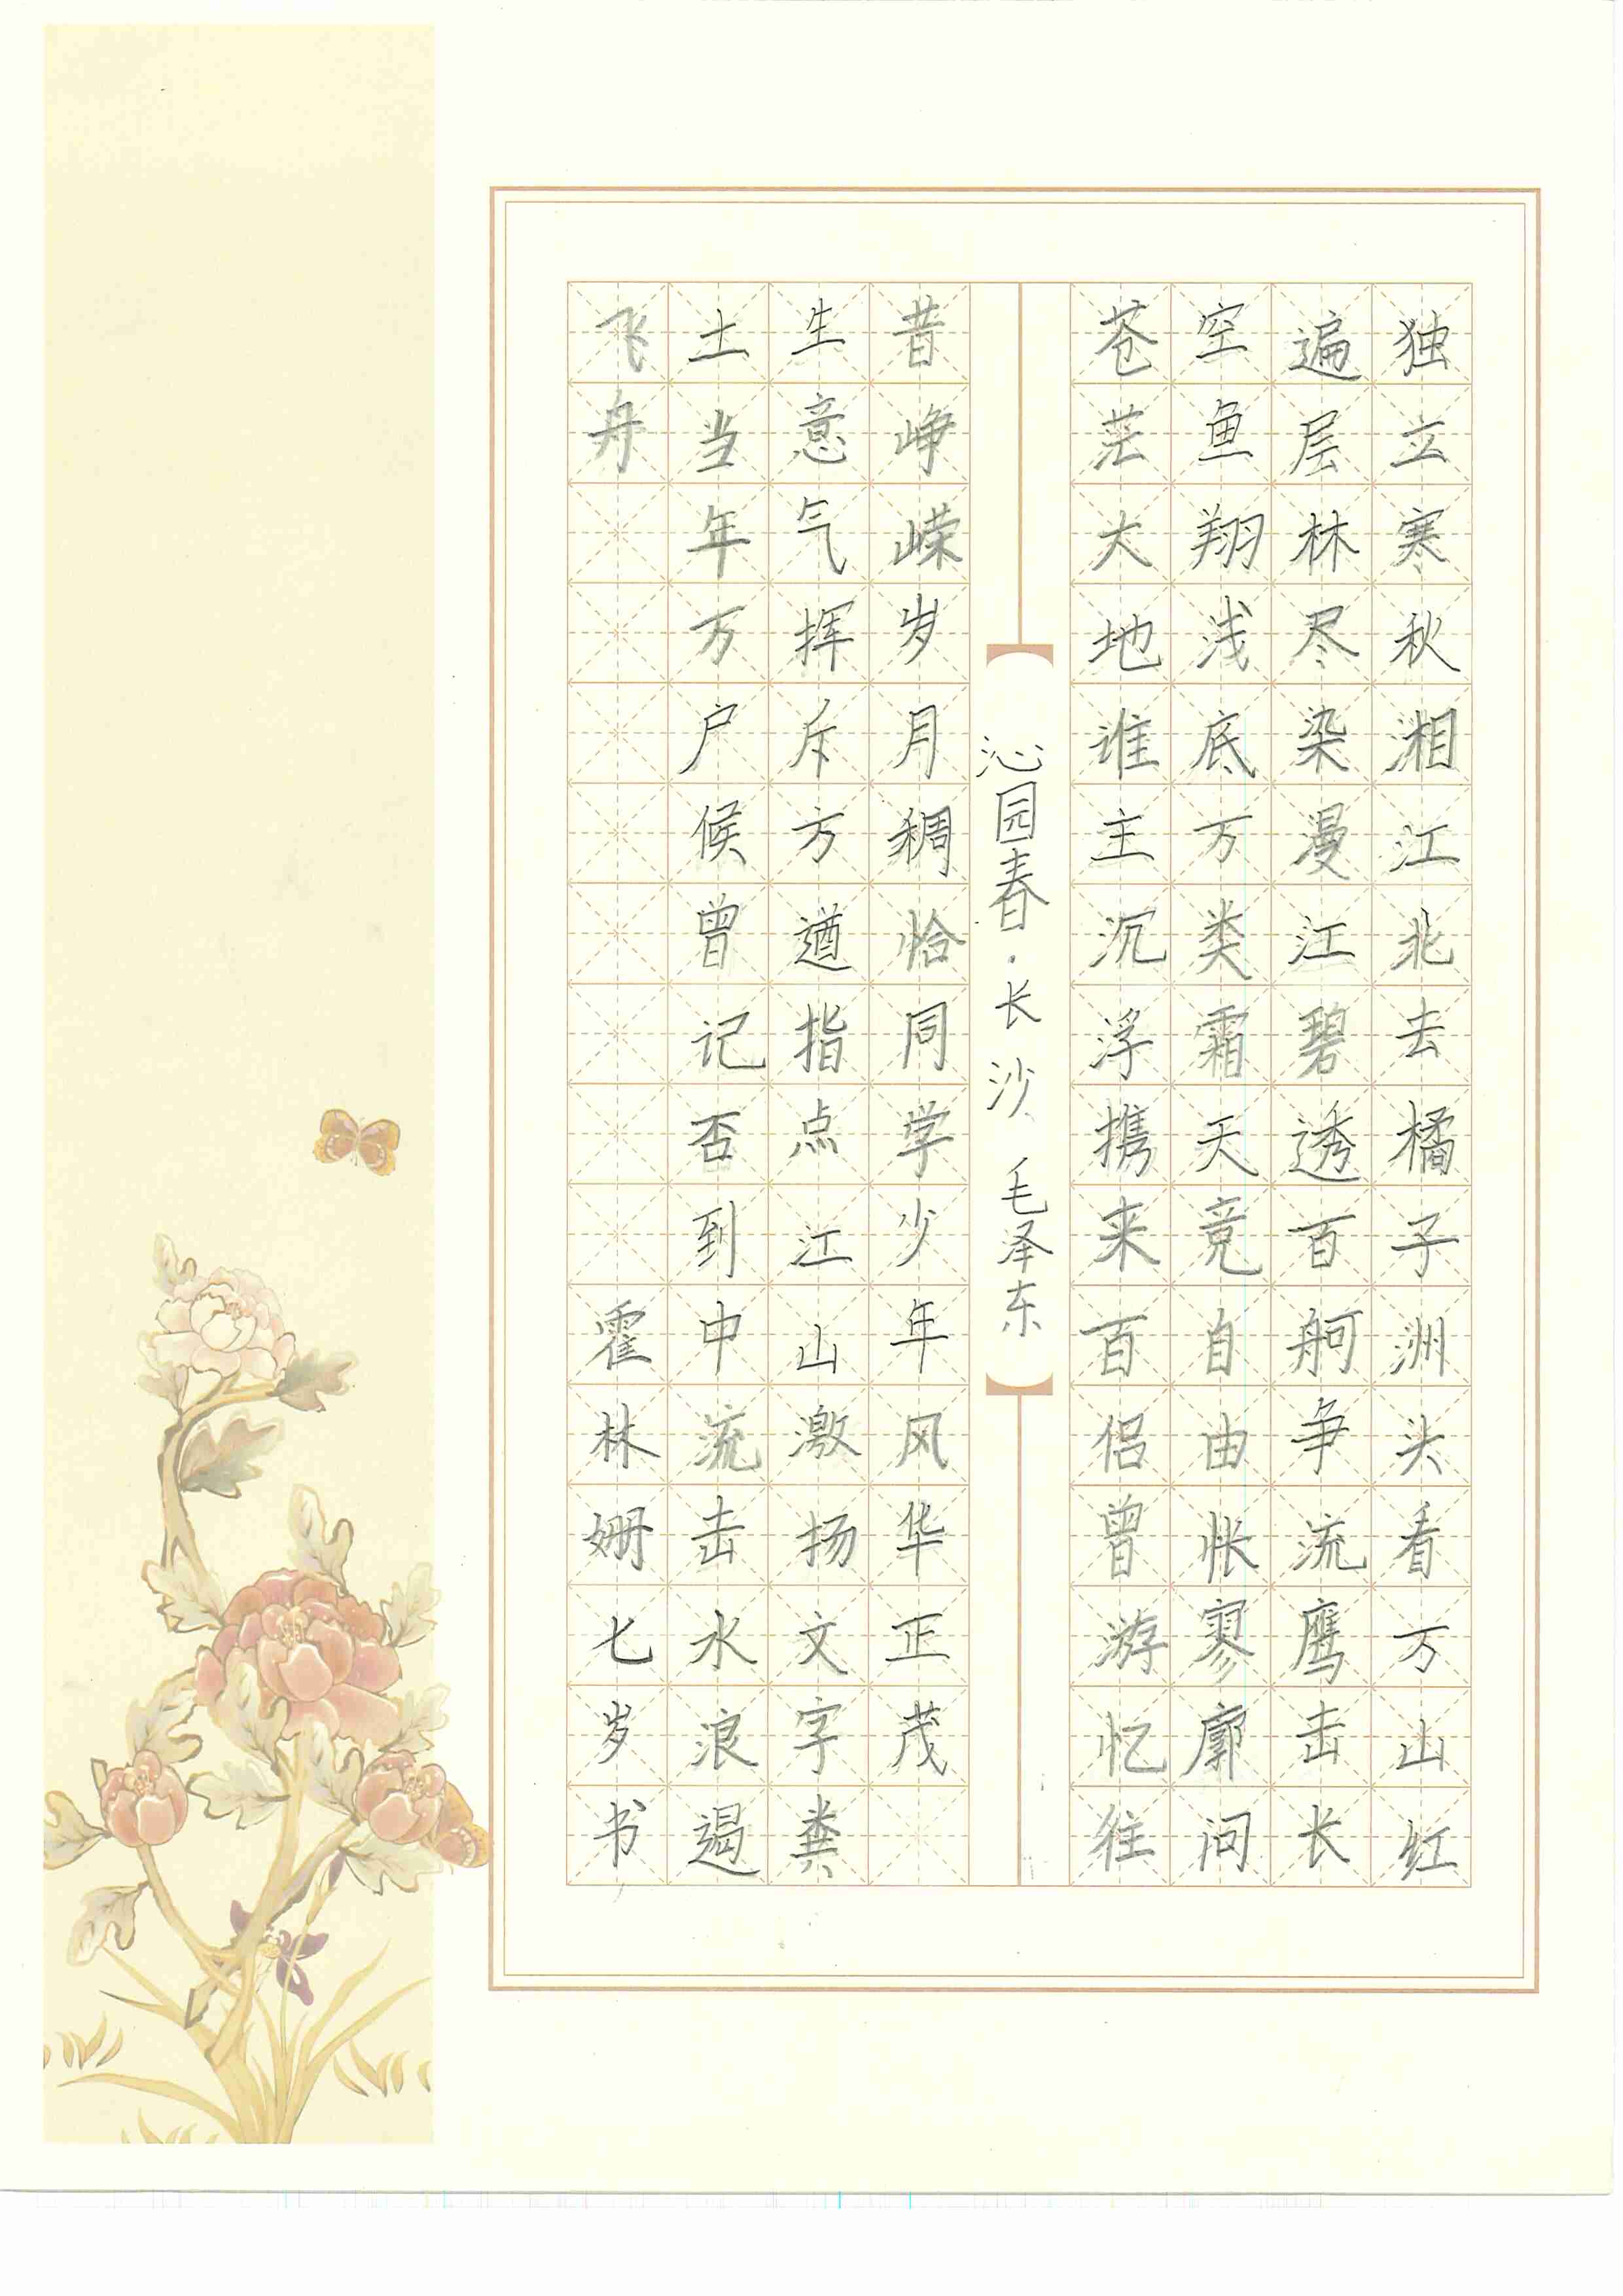 独立寒秋湘江北去橘子洲头看万山红
遍层林尽染漫江碧透百舸争流鹰击长
空鱼翔浅底万类霜天竞自由怅寥廓问
苍茫大地谁主沉浮携来百侣曾游忆往
沁园春·长沙 毛泽东
昔峥嵘岁月稠恰同学少年风华正茂
生意气挥斥方遒指点江山激扬文字粪
土当年万户候曾记否到中流击水浪遏
飞舟
霍林姗七岁书